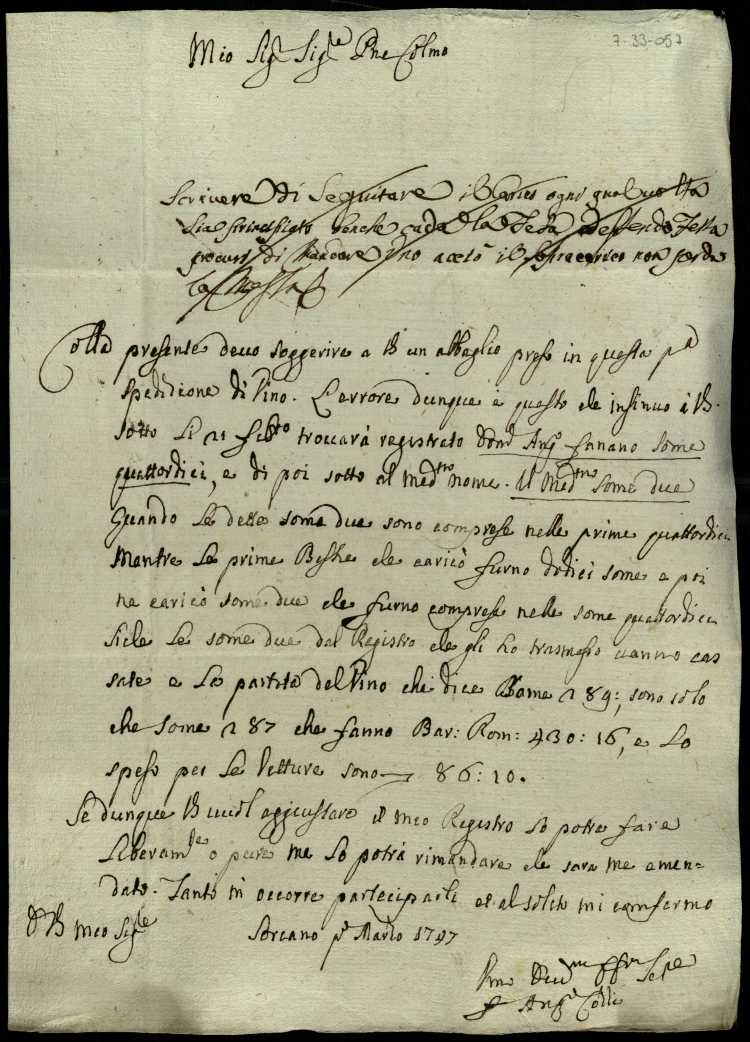 7-33-057
Mio Sig.r Sig.re Pne Colmo
Scrivere di Seguitare il carico ogni qual volta
sia principiato benche cada la Festa
procuri di mandare uno acciò il non perda
la Messa
Colla presente devo soggerire a V.S. un abbaglio preso in questa p.a
spedizione di Vino. L'errore dunque è questo che insinuo à V.S.
sotto li 21 Feb.ro troccarà registrato Ang.o Funano some
quattordici, e di poi sotto al med.mo nome. Il Med.mo some due
Quando le dette some due sono comprese nelle prime quattordici
Mentre le prime Bestie che caricò furno dodici some e poi
ne caricò some due che furno comprese nelle some quattordici
Siche le some due dal Registro che gli ho trasmesso vanno cas
sate e la partita del Vino che dice some 289:, sono solo
che some 287 che fanno Bar: Rom: 430:16, e lo
speso per le Vetture sono — 86:10.
Se dunque V.S. vuol aggiustare il mio Registro lo potrà fare
liberam.te o pure me lo potrà rimandare che sarà me emen=
dato. Tanto m'occorre parteciparli ed al solito mi confermo
D V.S. Mio Sig.re Sorcano p.o Marzo 1747
Ser.e
F Ang.o Colli